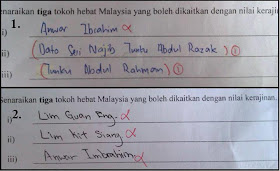 naraikan tiga tokoh hebat Malaysia yang boleh dikaitkan dengan nilai keraji
1.
i) Anwar Ibrahim
ii) (Dato Seri Najib Tunku Abdul Razak) ①
iii) (Tunku Abdul Rahman) ①
Senaraikan tiga tokoh hebat Malaysia yang boleh dikaitkan dengan nilai kerajinan.
2.
i) Lim Guan Eng.
ii) Lim Kit Siang
iii) Anwar Imbrahim